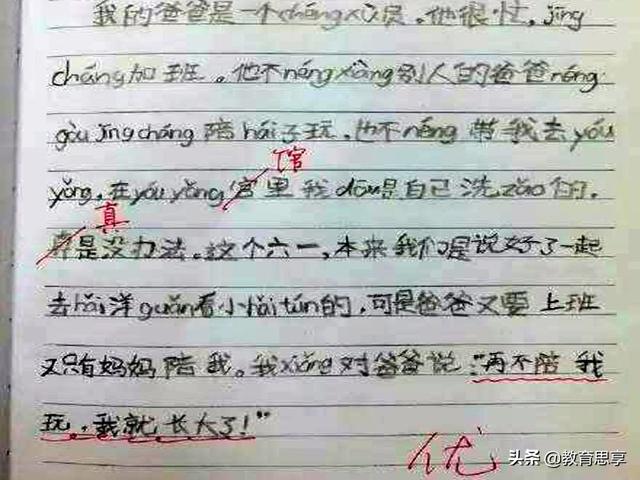 我的爸爸是一个chéng xù员。他很忙,jīng
cháng加班。他不néng xiàng别人的爸爸néng
gòu jīng cháng 陪hái子玩,也不néng 带我去yóu
馆
yǒng,在yóu yǒng宫里我dōu是自己洗zǎo的,
真
真是没办法。这个六一,本来我们是说好了一起
去hǎi洋guǎn看小hǎi tún的,可是爸爸又要上班
又只有妈妈陪我。我xiǎng对爸爸说:"再不陪我
玩,我就长大了!"
优
头条 @教育思享